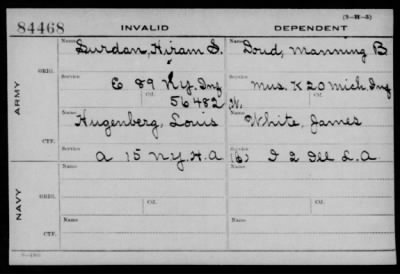 (3-H-5)
84468 INVALID DEPENDENT
Name Name
Surdan, Hiram S. Doud, Manning B
ARMY ORIG. Service Service
E 89 N.Y. Inf Mus. K 20 Mich Inf
Ctf. Ctf.
56482 W.
Name Name
Hugenberg, Louis White, James
CTF. Service Service
A 15 N.Y. H.A (6) I 2 Ill L.A.
NAVY Name Name
ORIG. Ctf. Ctf.
Name Name
CTF.